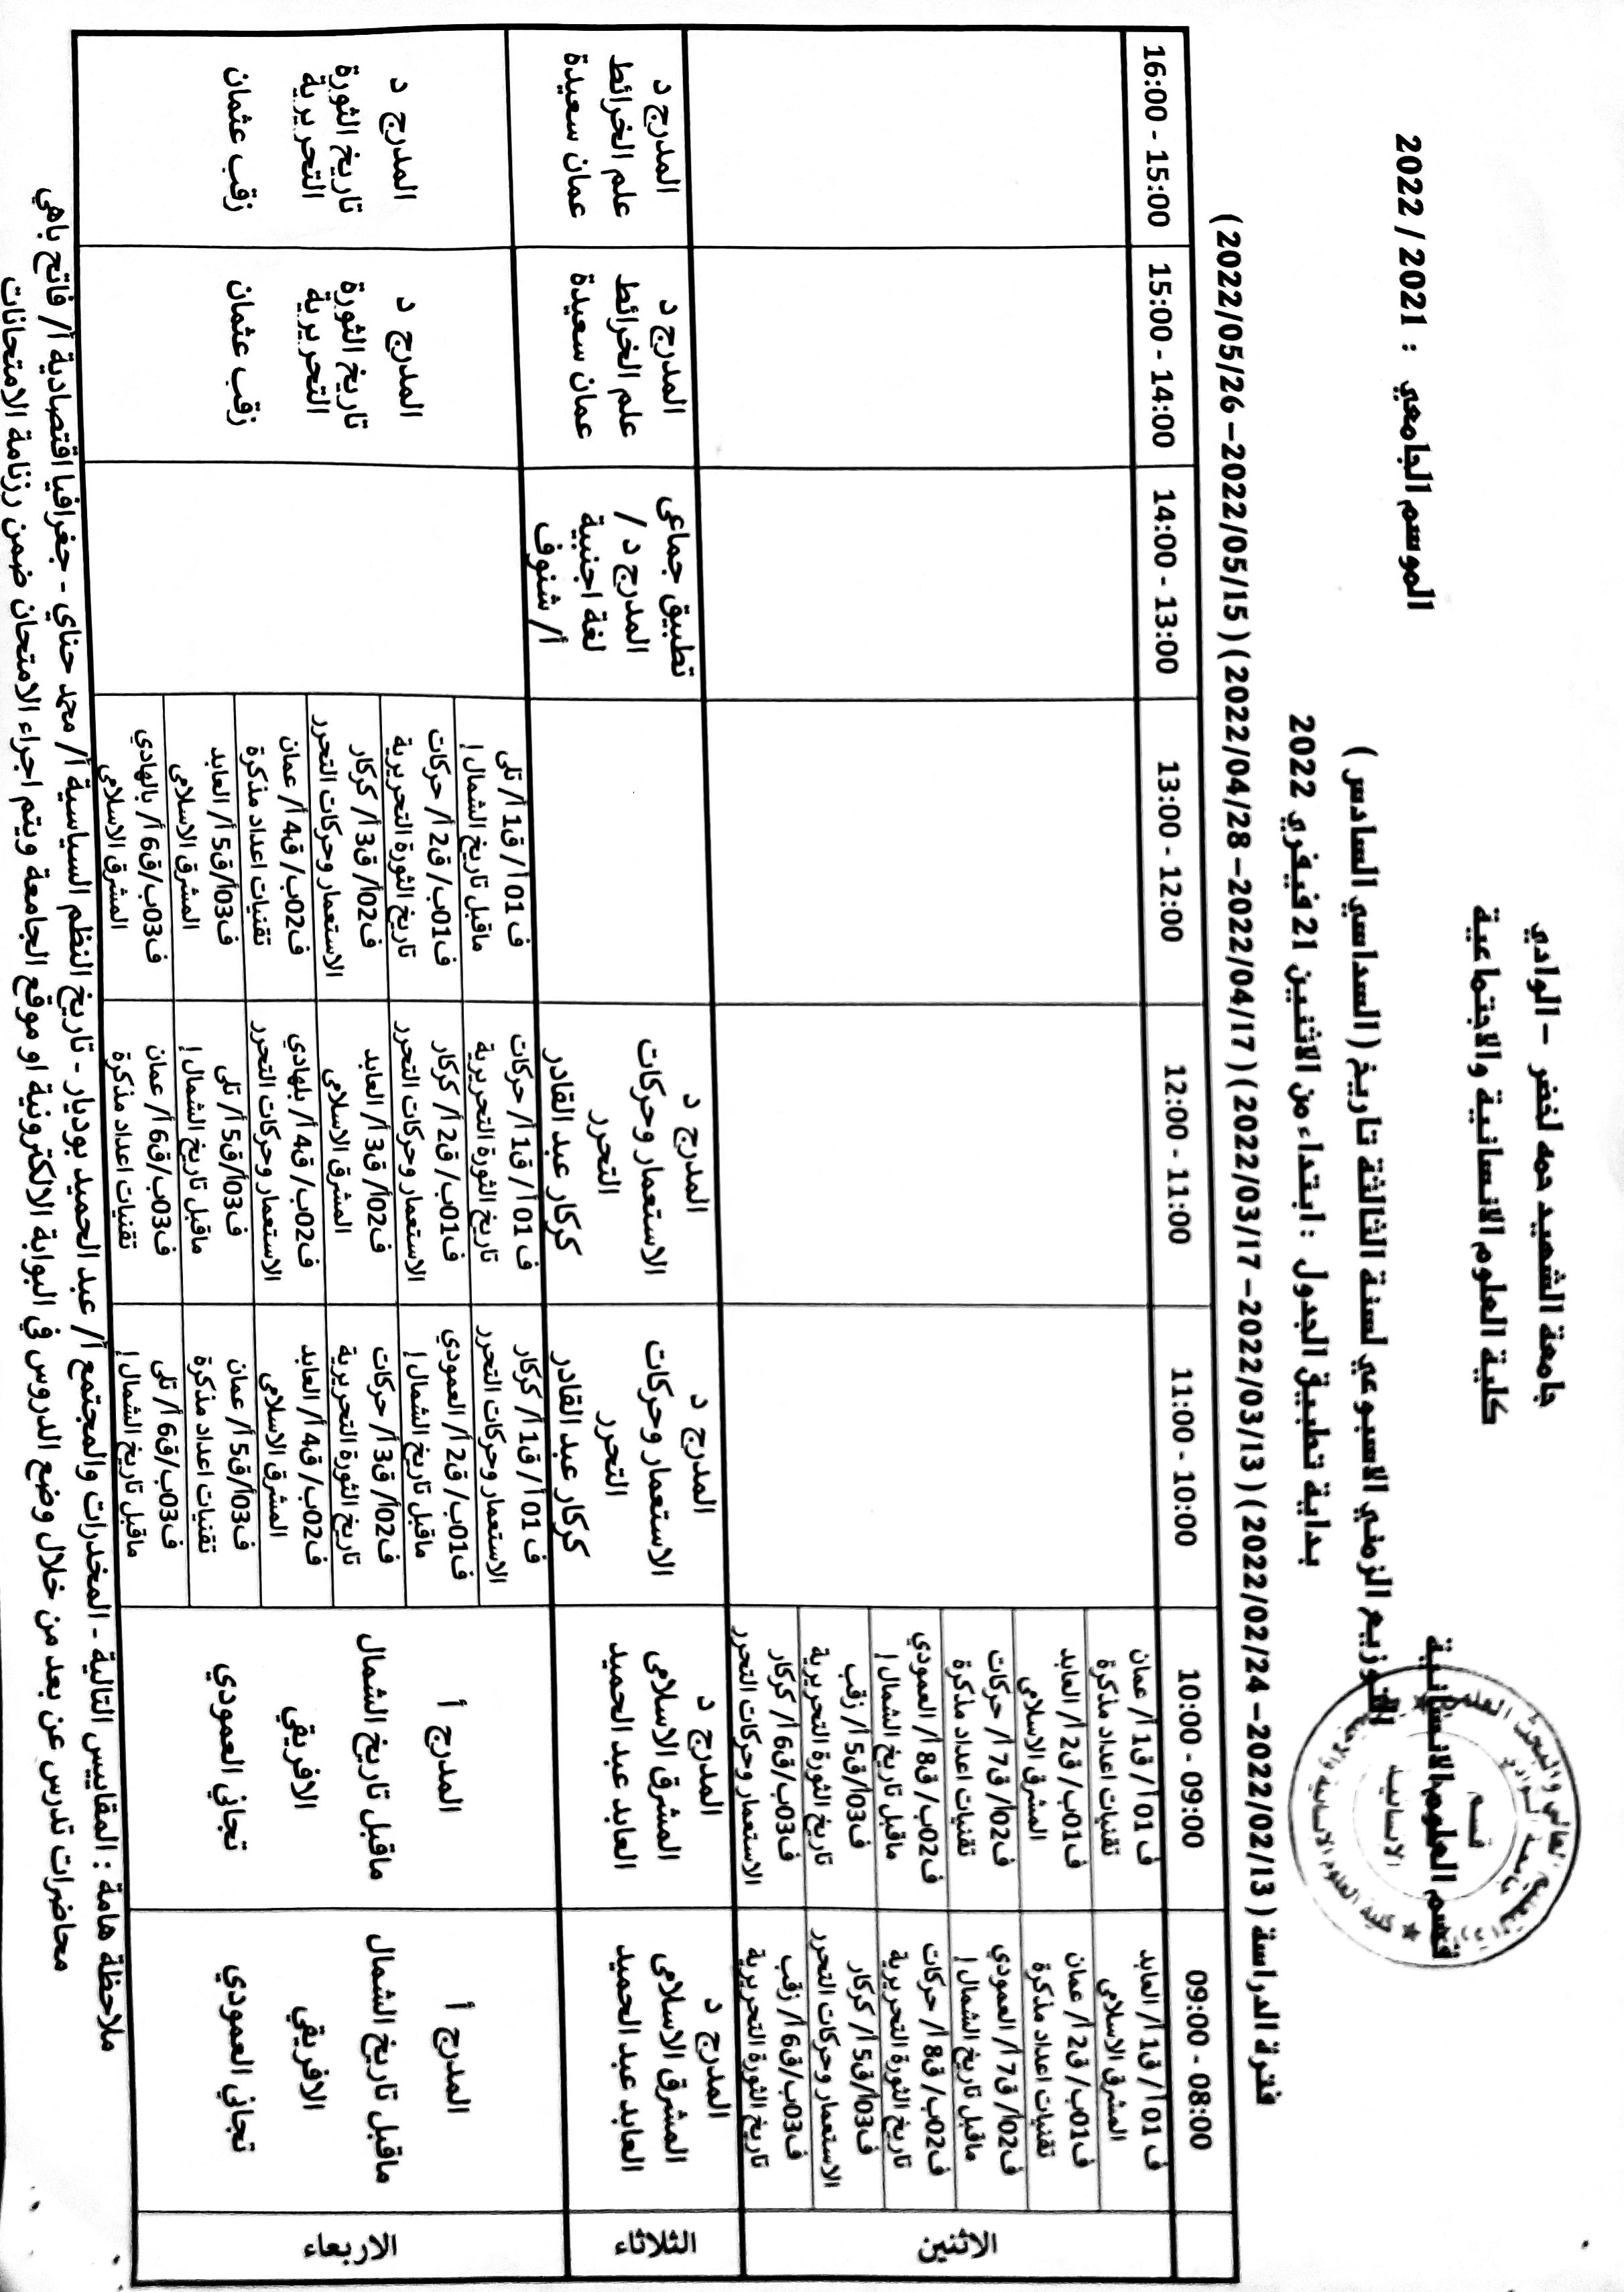 جامعة الشهيد حمه لخضر – الوادي
كلية العلوم الانسانية والاجتماعية
قسم العلوم الانسانية
الموسم الجامعي : 2021 / 2022
التوزيع الزمني الاسبوعي لسنة الثالثة تاريخ ( السداسي السادس )
بداية تطبيق الجدول : ابتداء من الاثنين 21 فيفري 2022
فترة الدراسة ( 2022/02/13 – 2022/02/24 ) ( 2022/03/13 – 2022/03/17 ) ( 2022/04/17 – 2022/04/28 ) ( 2022/05/15 – 2022/05/26 )
08:00 - 09:00
09:00 - 10:00
10:00 - 11:00
11:00 - 12:00
12:00 - 13:00
13:00 - 14:00
14:00 - 15:00
15:00 - 16:00
الاثنين
ف 01أ / ق1 أ/ العابد
المشرق الاسلامي
ف01ب/ ق2 أ/ عمان
تقنيات اعداد مذكرة
ف02أ/ ق7 أ/ العمودي
ماقبل تاريخ الشمال إ
ف02ب/ ق8 أ/ حركات
تاريخ الثورة التحريرية
ف03أ/ق5 أ/ كركار
الاستعمار وحركات التحرر
ف03ب/ق6 أ/ زقب
تاريخ الثورة التحريرية
ف 01أ / ق1 أ/ عمان
تقنيات اعداد مذكرة
ف01ب/ ق2 أ/ العابد
المشرق الاسلامي
ف02أ/ ق7 أ/ حركات
تقنيات اعداد مذكرة
ف02ب/ ق8 أ/ العمودي
ماقبل تاريخ الشمال إ
ف03أ/ق5 أ/ زقب
تاريخ الثورة التحريرية
ف03ب/ق6 أ/ كركار
الاستعمار وحركات التحرر
الثلاثاء
المدرج د
المشرق الاسلامي
العابد عبد الحميد
المدرج د
المشرق الاسلامي
العابد عبد الحميد
المدرج د
الاستعمار وحركات
التحرر
كركار عبد القادر
المدرج د
الاستعمار وحركات
التحرر
كركار عبد القادر
تطبيق جماعي
المدرج د /
لغة اجنبية
أ/ شنوف
المدرج د
علم الخرائط
عمان سعيدة
المدرج د
علم الخرائط
عمان سعيدة
الاربعاء
المدرج أ
ماقبل تاريخ الشمال
الافريقي
تجاني العمودي
المدرج أ
ماقبل تاريخ الشمال
الافريقي
تجاني العمودي
ف 01أ / ق1 أ/ كركار
الاستعمار وحركات التحرر
ف01ب/ ق2 أ/ العمودي
ماقبل تاريخ الشمال إ
ف02أ/ ق3 أ/ حركات
تاريخ الثورة التحريرية
ف02ب/ ق4 أ/ العابد
المشرق الاسلامي
ف03أ/ق5 أ/ عمان
تقنيات اعداد مذكرة
ف03ب/ق6 أ/ تلي
ماقبل تاريخ الشمال إ
ف 01أ / ق1 أ/ حركات
تاريخ الثورة التحريرية
ف01ب/ ق2 أ/ كركار
الاستعمار وحركات التحرر
ف02أ/ ق3 أ/ العابد
المشرق الاسلامي
ف02ب/ ق4 أ/ بلهادي
الاستعمار وحركات التحرر
ف03أ/ق5 أ/ تلي
ماقبل تاريخ الشمال إ
ف03ب/ق6 أ/ عمان
تقنيات اعداد مذكرة
ف 01أ / ق1 أ/ تلي
ماقبل تاريخ الشمال إ
ف01ب/ ق2 أ/ حركات
تاريخ الثورة التحريرية
ف02أ/ ق3 أ/ كركار
الاستعمار وحركات التحرر
ف02ب/ ق4 أ/ عمان
تقنيات اعداد مذكرة
ف03أ/ق5 أ/ العابد
المشرق الاسلامي
ف03ب/ق6 أ/ بالهادي
المشرق الاسلامي
المدرج د
تاريخ الثورة
التحريرية
زقب عثمان
المدرج د
تاريخ الثورة
التحريرية
زقب عثمان
ملاحظة هامة : المقاييس التالية - المخدرات والمجتمع أ/ عبد الحميد بوديار - تاريخ النظم السياسية أ/ محمد حناي - جغرافيا اقتصادية أ/ فاتح باهي
محاضرات تدرس عن بعد من خلال وضع الدروس في البوابة الالكترونية او موقع الجامعة ويتم اجراء الامتحان ضمن رزنامة الامتحانات